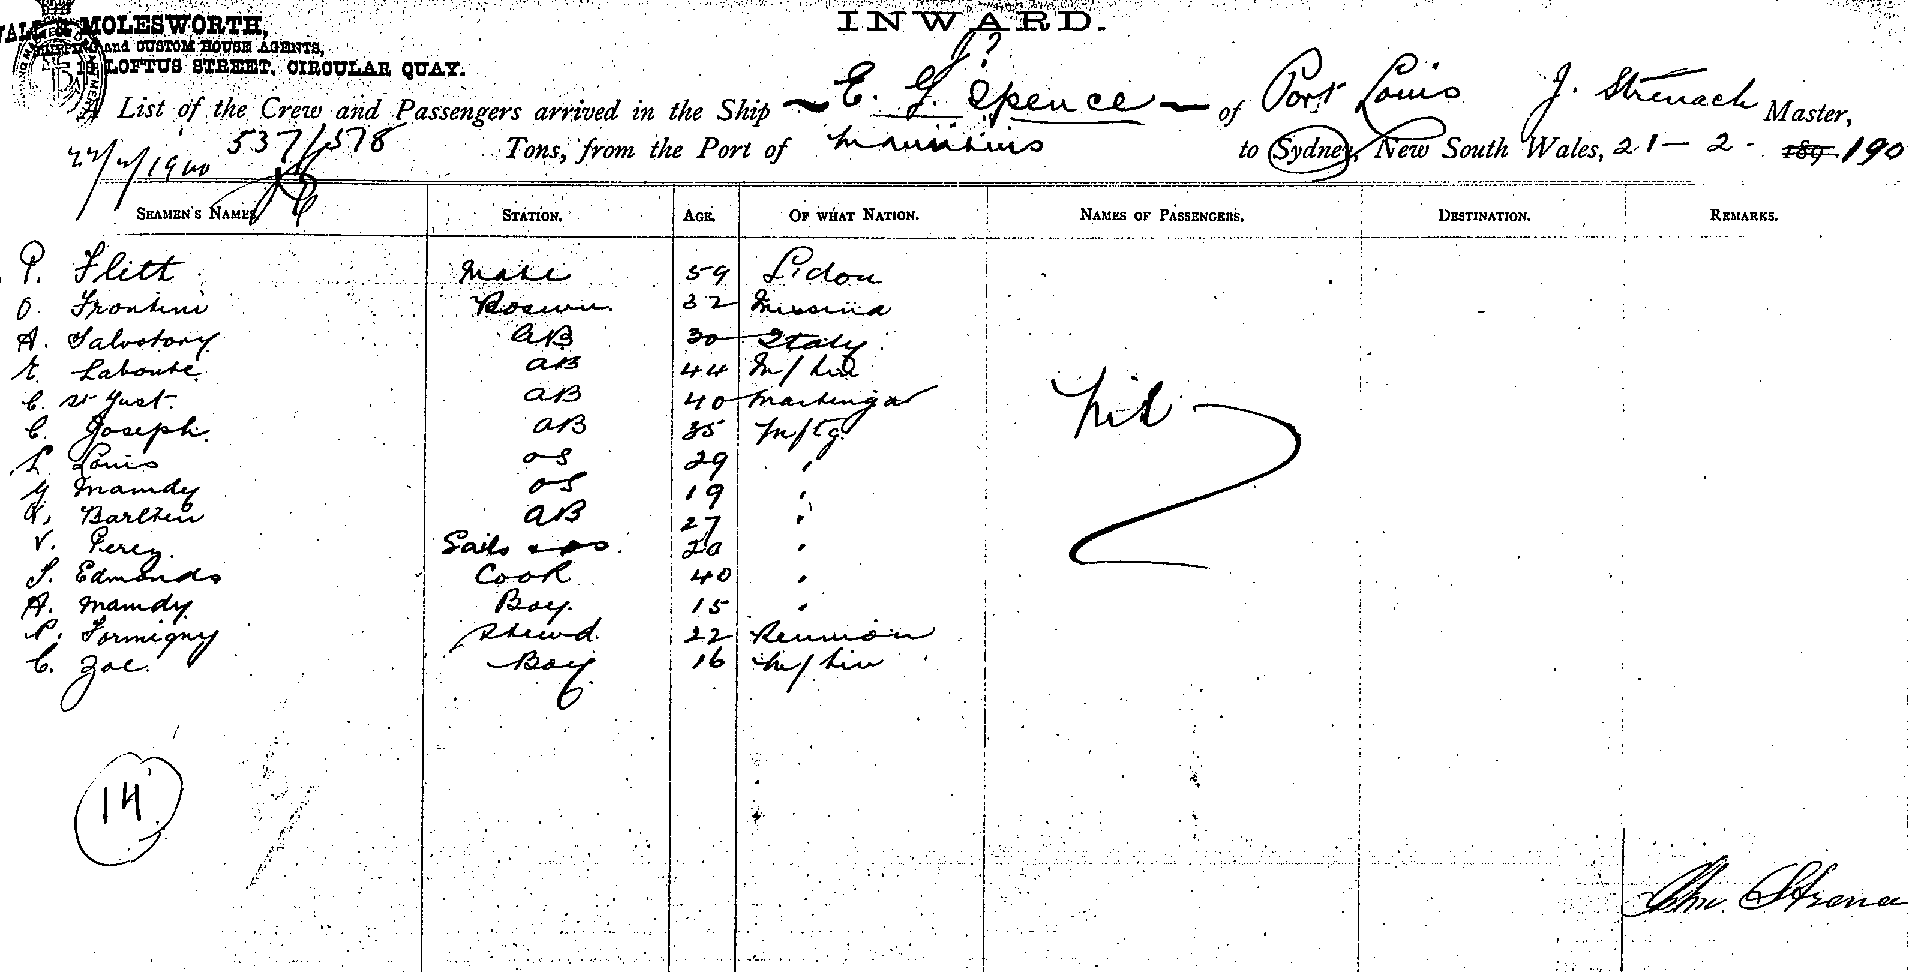 INWARD.
MOLESWORTH,
and CUSTOM HOUSE AGENTS,
LOFTUS STREET, CIRCULAR QUAY.
List of the Crew and Passengers arrived in the Ship E. J. Spence of Port Louis J. Strenach Master,
22/2/1900 537/578 Tons, from the Port of Mauritius to Sydney, New South Wales, 21-2- 189 190
SEAMEN'S NAMES STATION. AGE. OF WHAT NATION. NAMES OF PASSENGERS. DESTINATION. REMARKS.
P. Flett Mate 59
O. Frontini 32 Messina
A. Salvotory AB 30 Italy
Laboute AB 44
C. St Just. AB 40
C. Joseph. AB 35
L Louis OS 29 "
G Mamdy OS 19 "
Barltien AB 27 "
V. Percy. Sails 20 "
S. Edmonds Cook 40 "
A. Mamdy Boy. 15 "
P. Formigny Stewd. 22 Reunion
C. Zoe. Boy 16
Nil
14